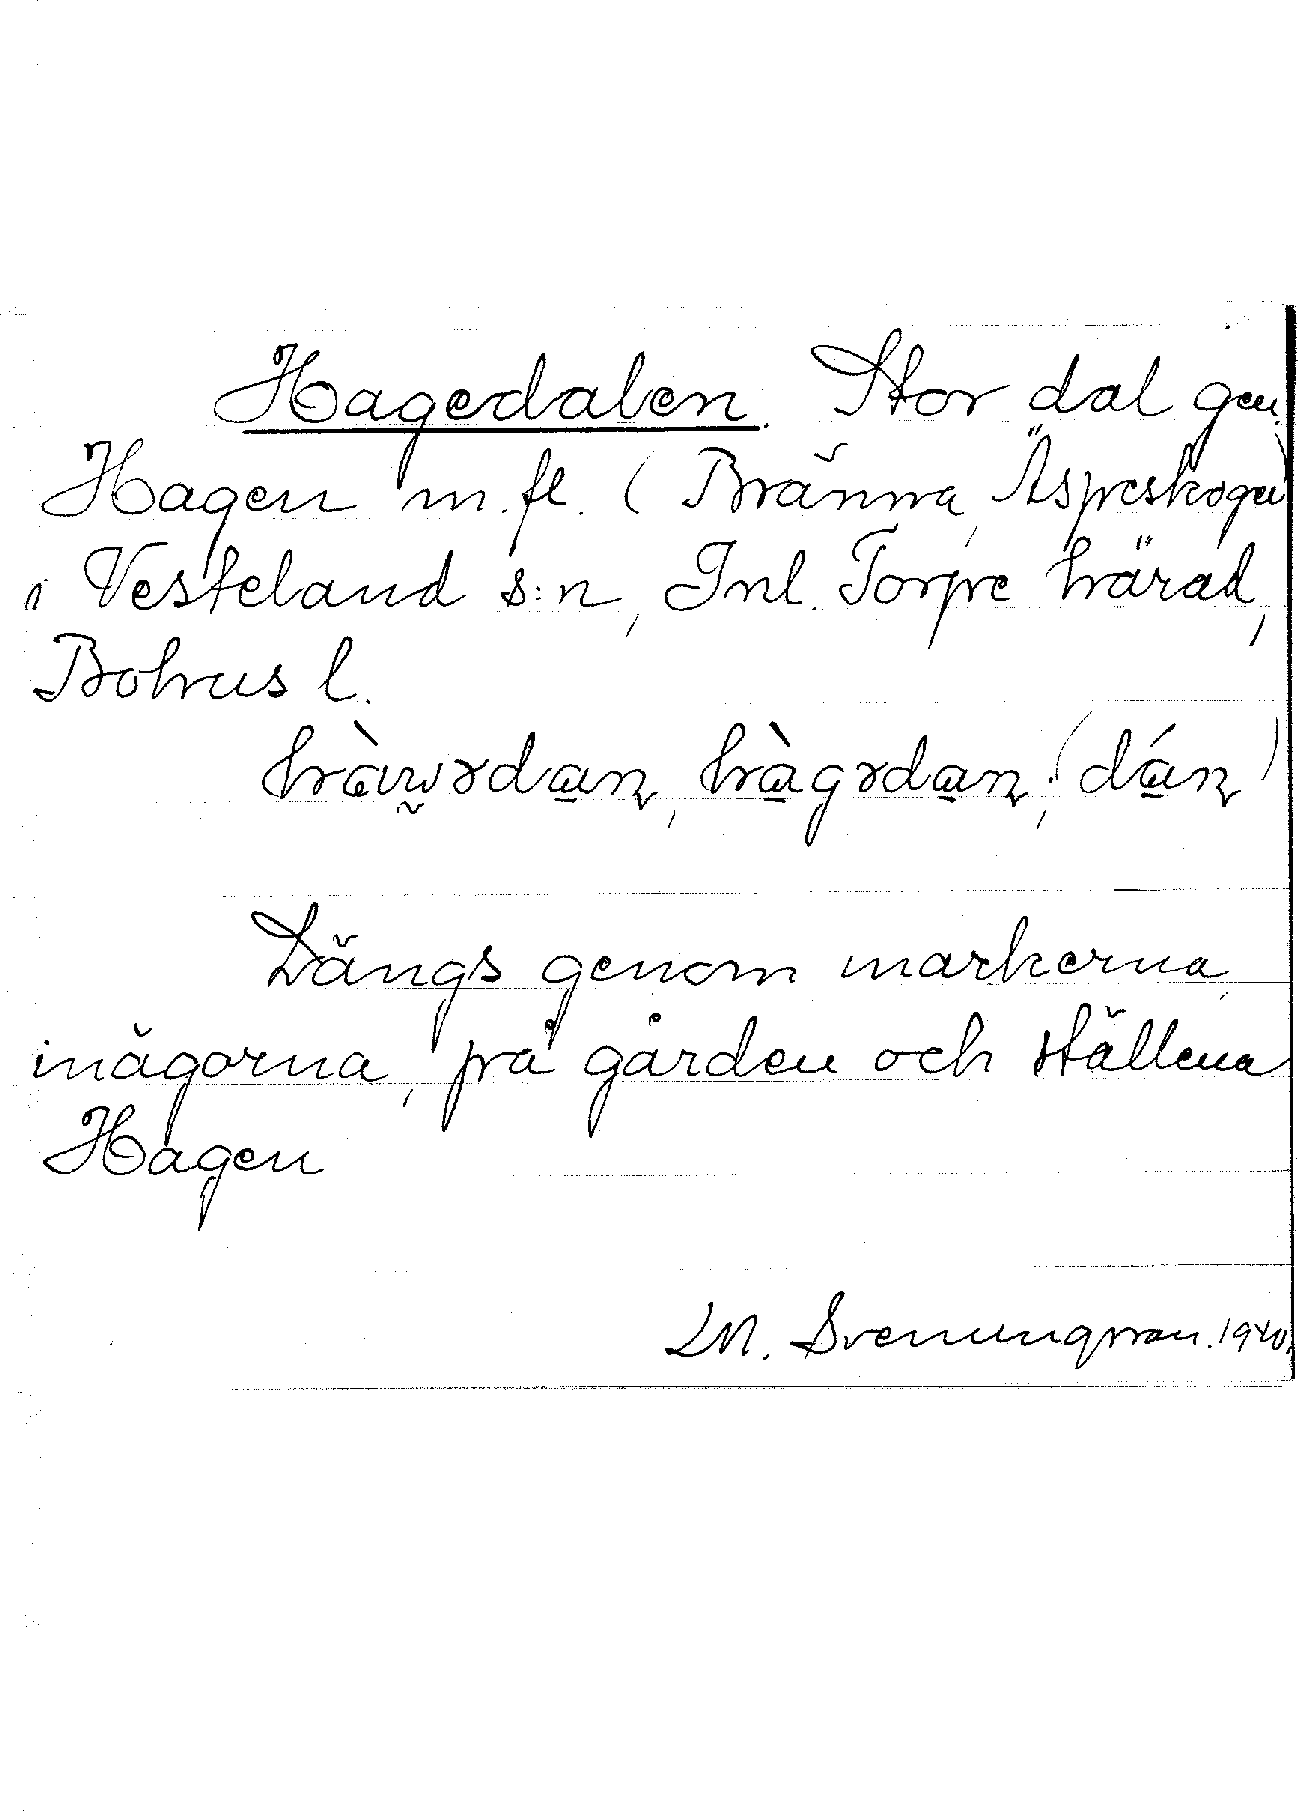 Hagedalen. Stor dal gen.
Hagen m. fl. (Bränna, Äspeskogen)
i Vesteland s:n, Inl. Torpe härad,
Bohus l.
hàw̰ədan, hàgədan; (dán)
Längs genom markerna,
inägorna, på gården och ställena
Hagen
M. Svenungsson. 1940.